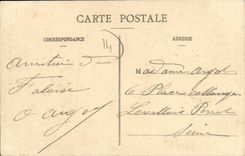 CARTE POSTALE
CORRESPONDANCE
ADRESSE
14
Amitiés de
Falaise
Madame Argot
6 Place Collange
Levallois Perret
Seine